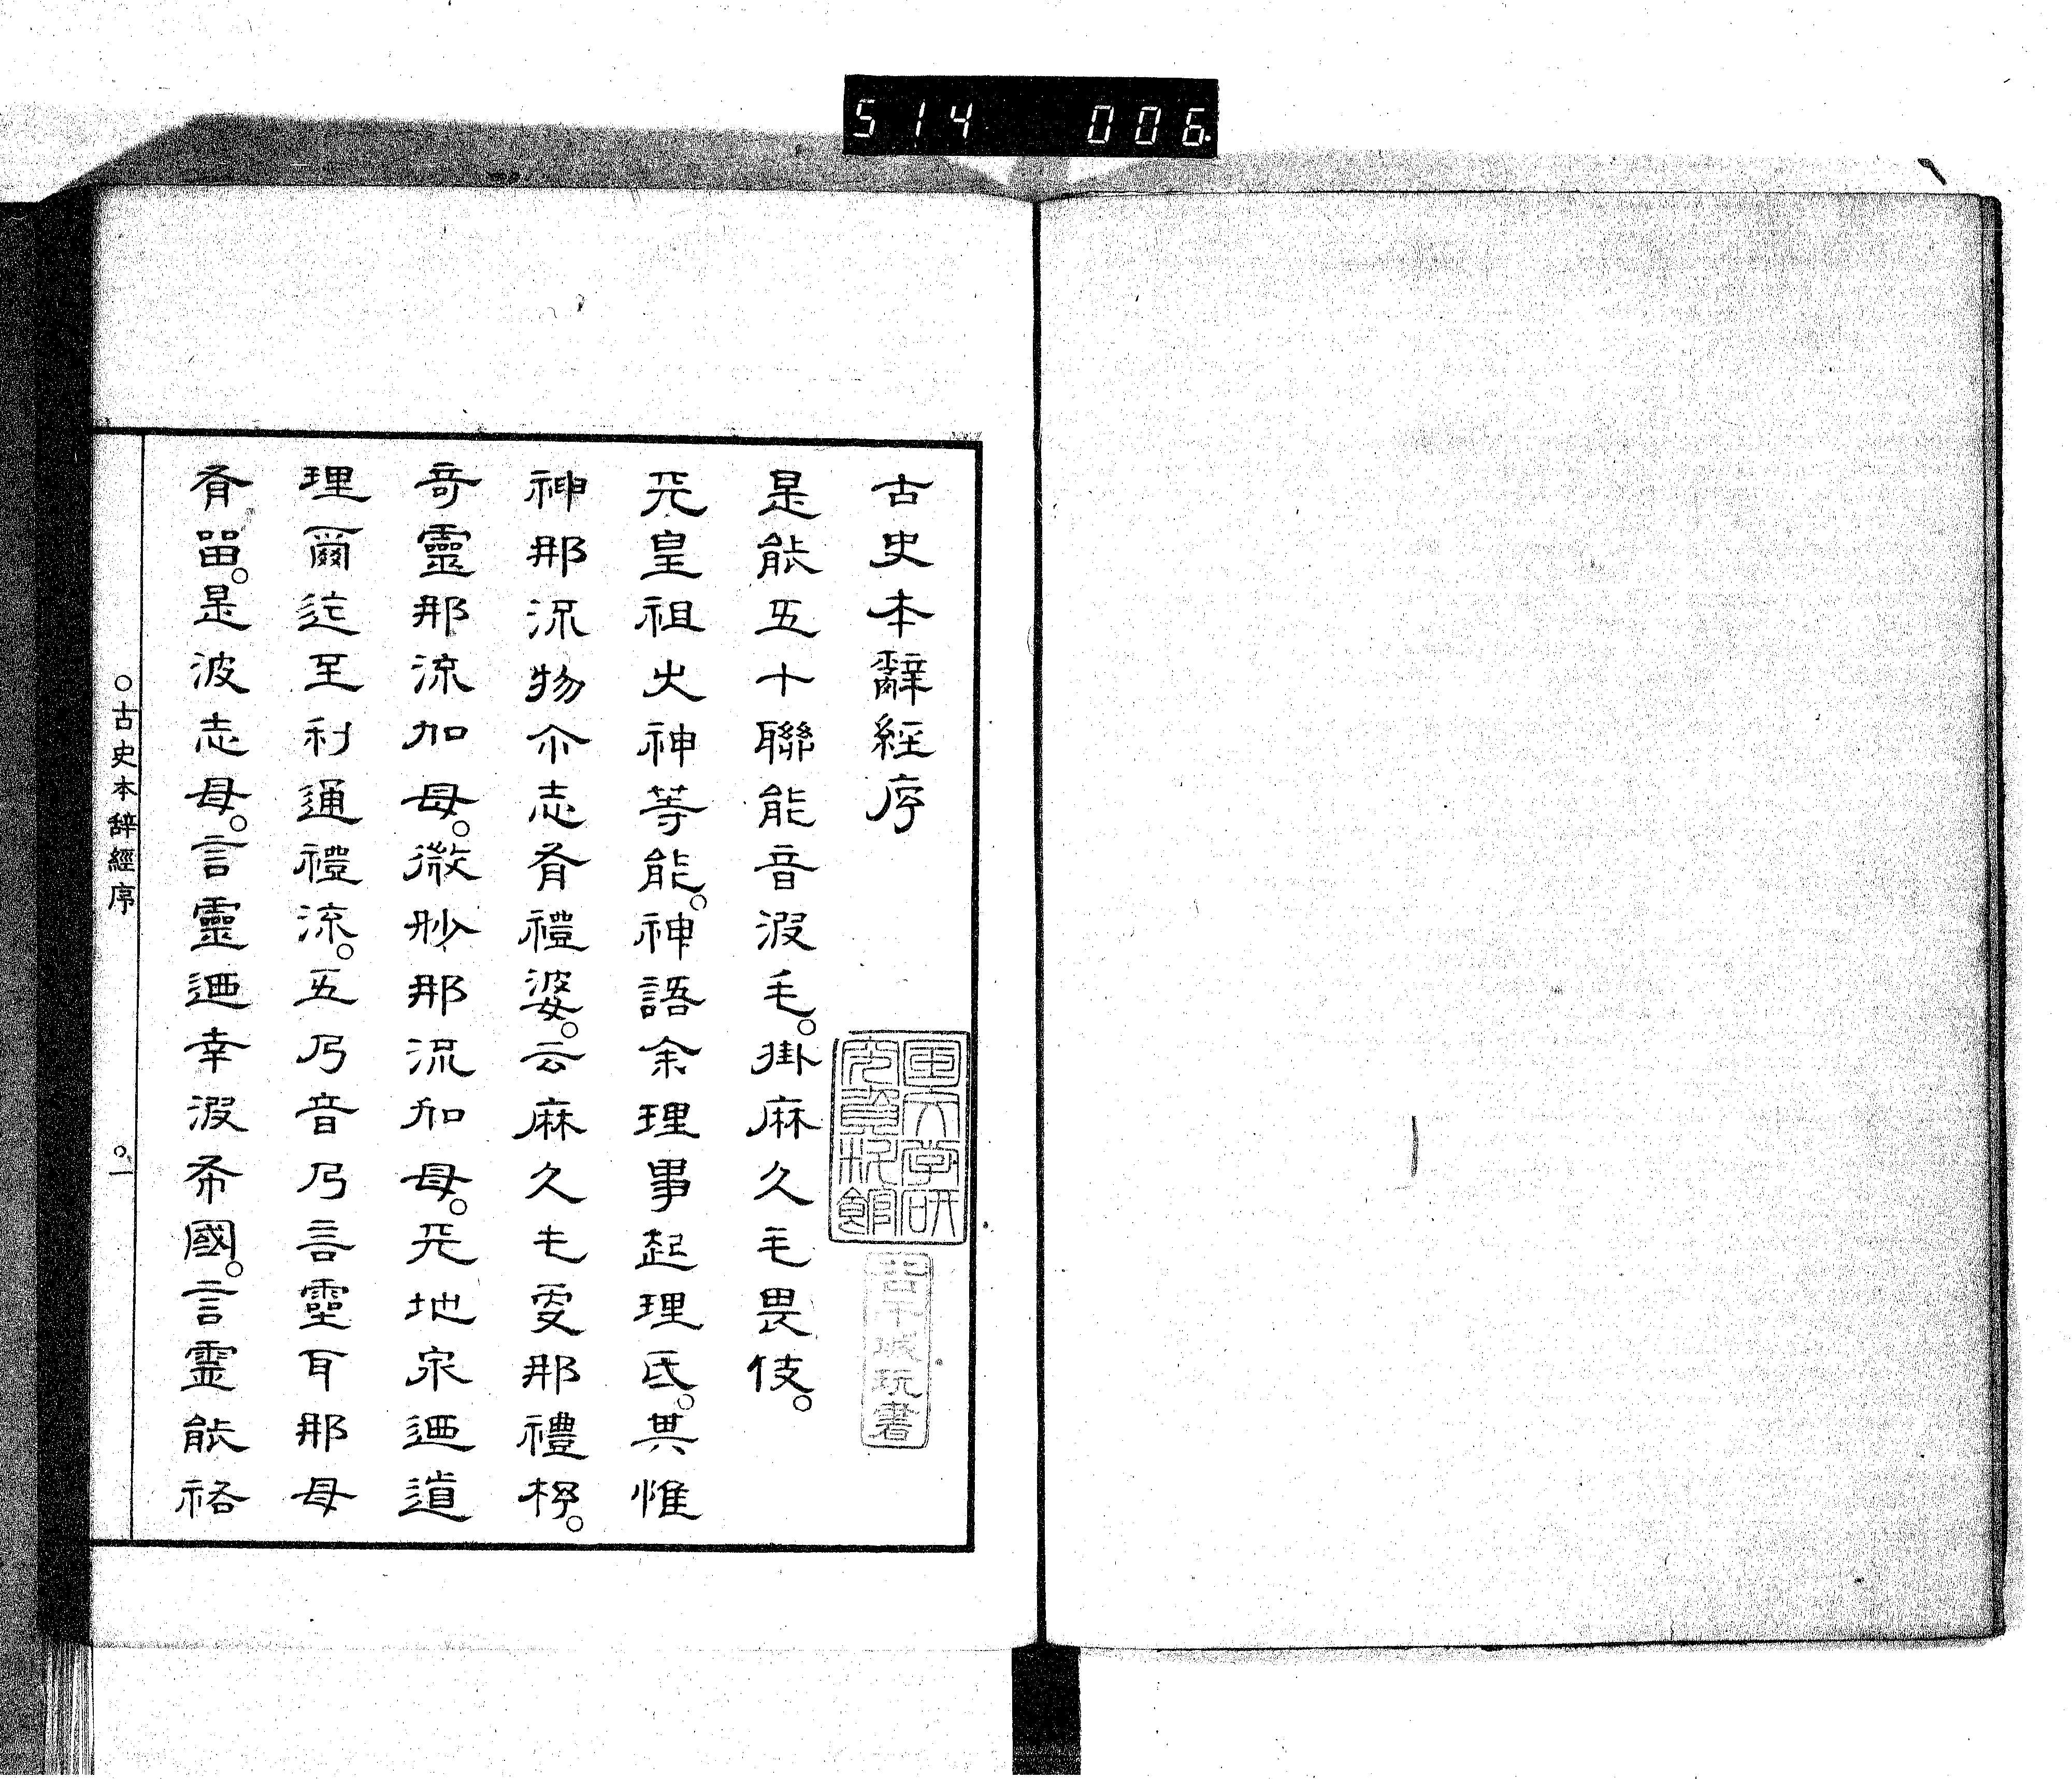 514 006.
古史本辭經序
是能五十聯能音波毛。掛麻久毛畏伎。
天皇祖大神等能。神語尒理事起理氐。其惟
神那流物尒志有禮婆。云麻久毛更那禮杼。
奇靈那流加母。微妙那流加母。天地泉迺道
理爾迄至利通禮流。五乃音乃言靈耳那母
有留。是波志母。言靈迺幸波布國。言靈能祐
國文学研究資料館
○古史本辞經序 ○一